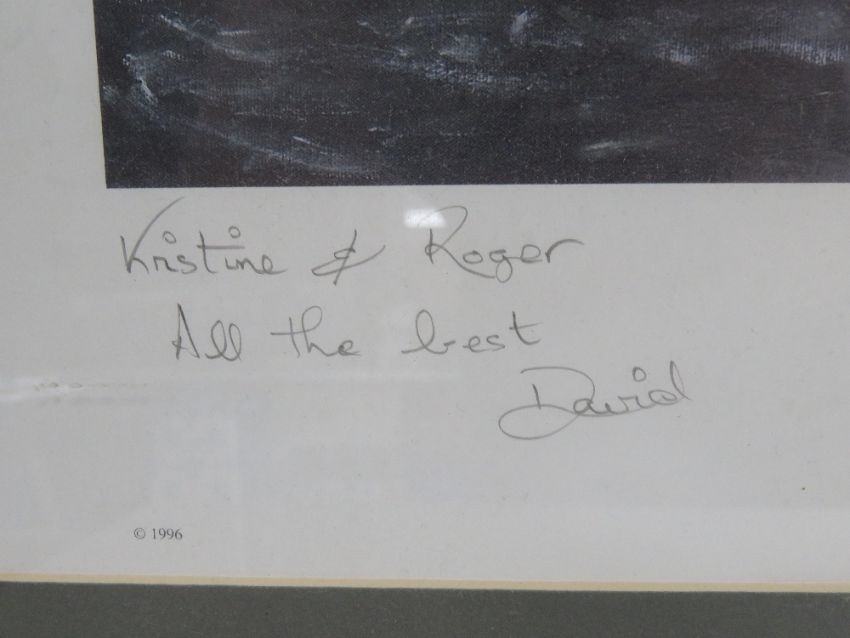 Kristine & Roger
All the best
David
© 1996